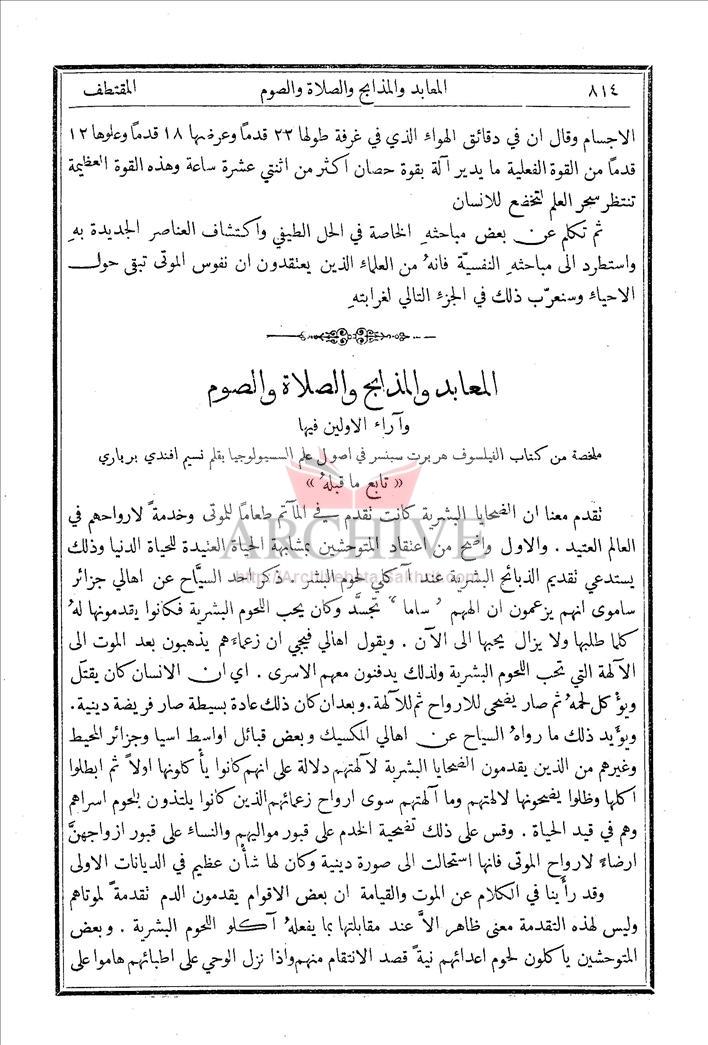 ٨١٤ المعابد والمذابح والصلاة والصوم المقتطف
الاجسام وقال ان في دقائق الهواء الذي في غرفة طولها ٢٢ قدمًا وعرضها ١٨ قدمًا وعلوها ١٢
قدمًا من القوة الفعلية ما يدير آلة بقوة حصان اكثر من اثنتي عشرة ساعة وهذه القوة العظيمة
تنتظر سحر العلم لتخضع للانسان
ثم تكلم عن بعض مباحثهِ الخاصة في الحل الطيفي واكتشاف العناصر الجديدة بهِ
واستطرد الى مباحثهِ النفسيَّة فانهُ من العلماء الذين يعتقدون ان نفوس الموتى تبقى حول
الاحياء وسنعرّب ذلك في الجزء التالي لغرابتهِ
المعابد والمذابح والصلاة والصوم
وآراء الاولين فيها
ملخصة من كتاب الفيلسوف هربرت سبنسر في اصول علم السسيولوجيا بقلم نسيم افندي برباري
« تابع ما قبلهُ »
تقدم معنا ان الضحايا البشرية كانت تقدم في المآتم طعامًا للموتى وخدمةً لارواحهم في
العالم العتيد . والاول واضح من اعتقاد المتوحشين بمشابهة الحياة العتيدة للحياة الدنيا وذلك
يستدعي تقديم الذبائح البشرية عند آكلي لحوم البشر . ذكر احد السيَّاح عن اهالي جزائر
ساموى انهم يزعمون ان الههم " ساما " تجسَّد وكان يحب اللحوم البشرية فكانوا يقدمونها لهُ
كلما طلبها ولا يزال يحبها الى الآن . ويقول اهالي فيجي ان زعماءهم يذهبون بعد الموت الى
الآلهة التي تحب اللحوم البشرية ولذلك يدفنون معهم الاسرى . اي ان الانسان كان يقتَل
ويؤكل لحمهُ ثم صار يضحى للارواح ثم للآلهة . وبعد ان كان ذلك عادة بسيطة صار فريضة دينية .
ويؤيد ذلك ما رواهُ السياح عن اهالي المكسيك وبعض قبائل اواسط اسيا وجزائر المحيط
وغيرهم من الذين يقدمون الضحايا البشرية لآلهتهم دلالة على انهم كانوا يأكلونها اولاً ثم ابطلوا
اكلها وظلوا يضحونها لالهتهم وما آلهتهم سوى ارواح زعمائهم الذين كانوا يلتذون بلحوم اسراهم
وهم في قيد الحياة . وقس على ذلك تضحية الخدم على قبور مواليهم والنساء على قبور ازواجهنَّ
ارضاءً لارواح الموتى فانها استحالت الى صورة دينية وكان لها شأن عظيم في الديانات الاولى
وقد رأينا في الكلام عن الموت والقيامة ان بعض الاقوام يقدمون الدم تقدمةً لموتاهم
وليس لهذه التقدمة معنى ظاهر الاَّ عند مقابلتها بما يفعلهُ آكلو اللحوم البشرية . وبعض
المتوحشين ياكلون لحوم اعدائهم نيةً قصد الانتقام منهم واذا نزل الوحي على اطبائهم هاموا على
ARCHIVE